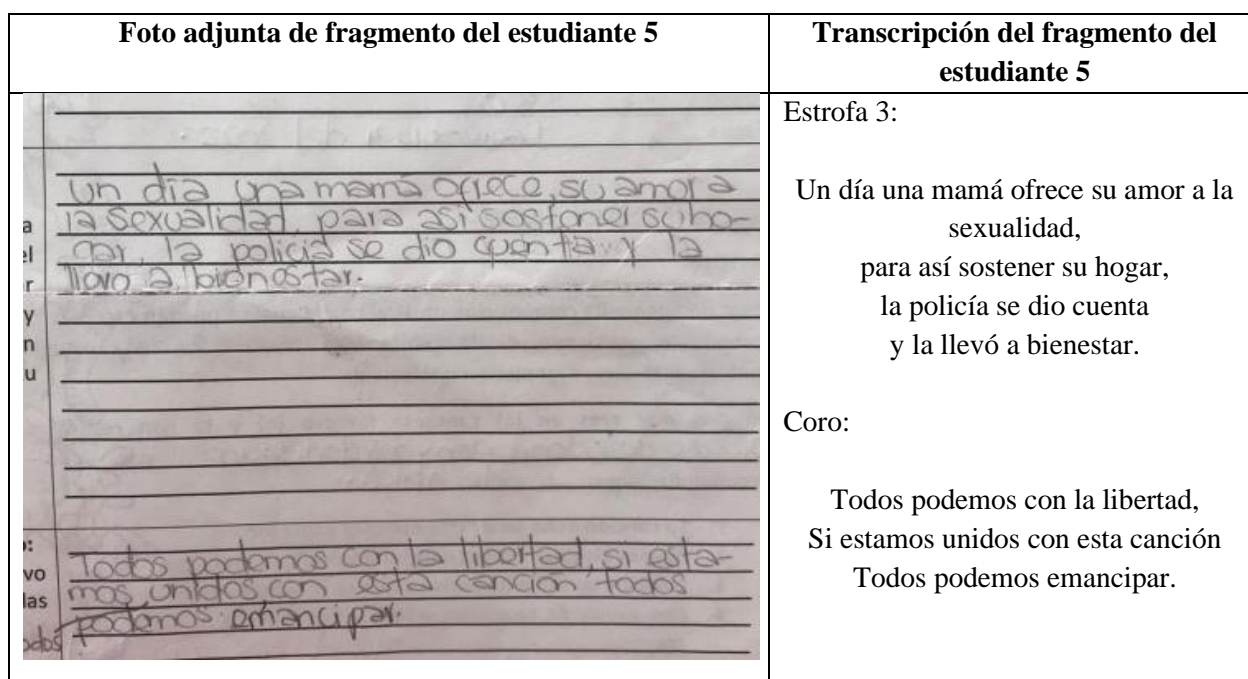 Foto adjunta de fragmento del estudiante 5
Transcripción del fragmento del
estudiante 5
un día una mamá ofrece su amor a
la sexualidad, para asi sostener su ho-
gar, la policia se dio cuenta y la
llevo a bienestar.
a
el
r
y
n
u
Todos podemos con la libertad, si esta-
mos unidos con esta canción todos
podemos emancipar.
o:
vo
las
odos
Estrofa 3:
Un día una mamá ofrece su amor a la
sexualidad,
para así sostener su hogar,
la policía se dio cuenta
y la llevó a bienestar.
Coro:
Todos podemos con la libertad,
Si estamos unidos con esta canción
Todos podemos emancipar.